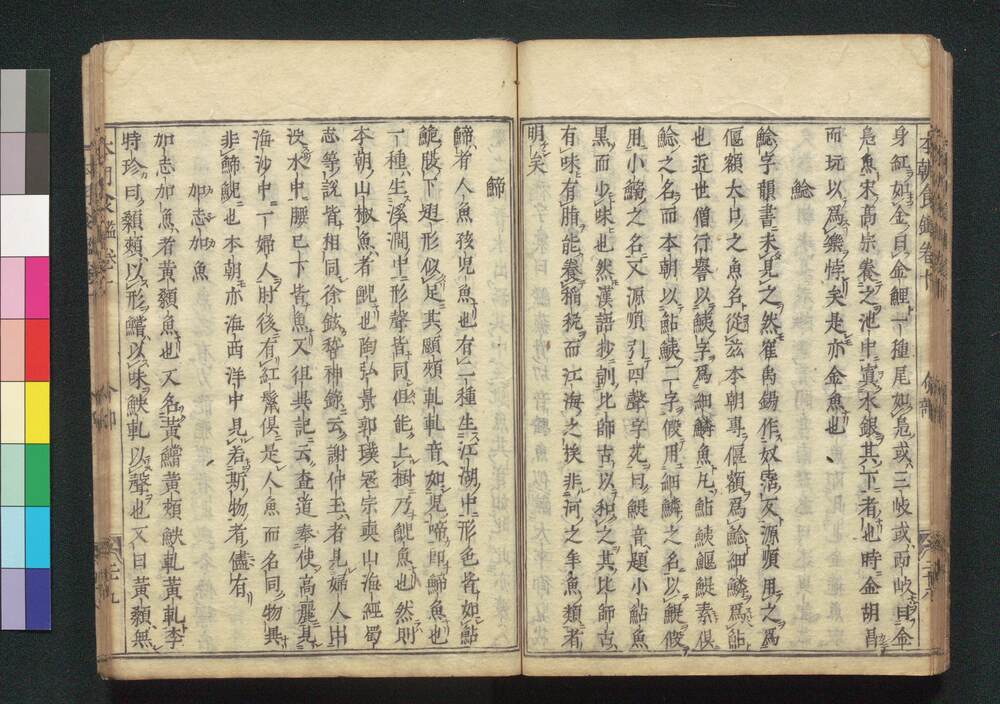 本朝食鑑卷十
身紅如金曰金鯉一種尾如是或三岐或兩岐曰金
是魚宋高宗養之池中實水銀其下者也時金胡昌
而玩以爲樂悖矣是亦金魚也
鯰
鯰字韻書未見之然崔禹錫作奴霑反源順用之爲
偃額大口之魚名從茲本朝專偃額爲鯰細鱗爲鮎
也近世僧行譽以鮧字爲細鱗魚凡鮎鮧鰋鯷素俱
鯰之名而本朝以鮎鮧二字假用細鱗之名以鯷假
用小鯆之名又源順引四聲字苑曰鯷音題小鮎魚
黑而少味也然漢語抄訓比師古以和之其比師古
有味有脂能養稱稅而江海之挨非河之牟魚類者
明矣
鯑
鯑者人魚孩兒魚也有二種生江湖中形色皆如鮎
鮠腹下翅形似足其顋頰軋軋音如兒啼即鯑魚也
一種生溪澗中形聲皆同但能上樹乃鯢魚也然則
本朝山椒魚者鯢也陶弘景郭璞冠宗奭山海經蜀
志等說皆相同徐鉉稽神錄云謝仲玉者見婦人出
沒水中腰已下皆魚又徂異記云查道奉使高麗見
海沙中一婦人肘後有紅鬛俱是人魚而名同物異
非鯑鯢也本朝亦海西洋中見若斯物者儘有
加志加魚
加志加魚者黃顙魚也又名黃鱨黃頰鮧軋黃軋李
時珍曰顙頰以形鱨以味鮧軋以聲也又曰黃顙無